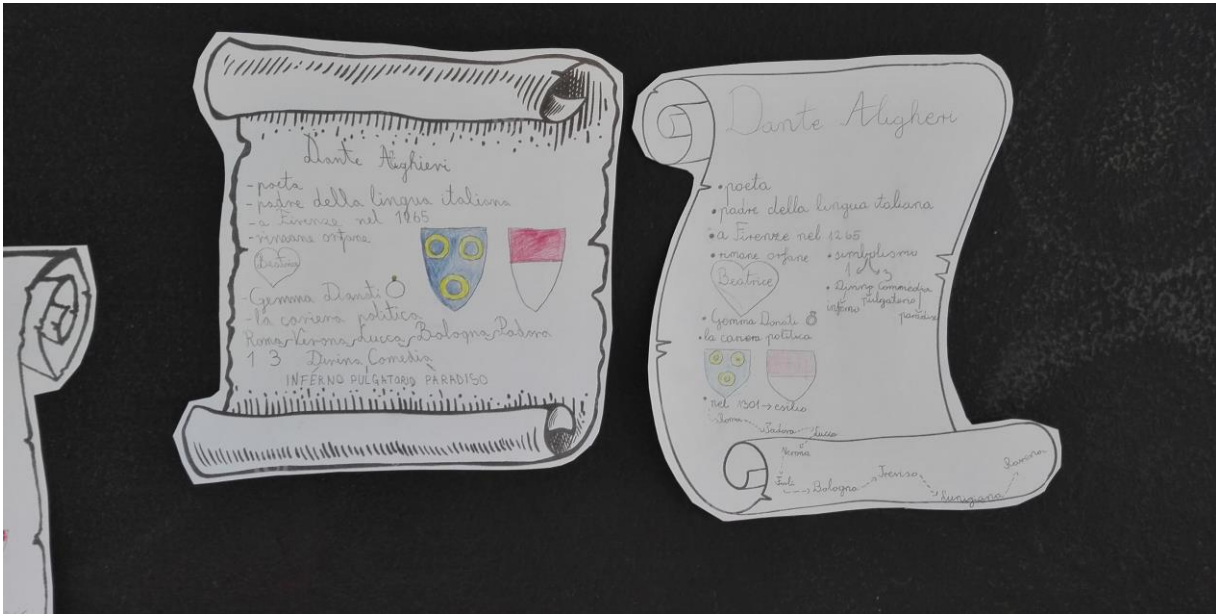 Dante Alighieri
- poeta
- padre della lingua italiana
- a Firenze nel 1265
- rimane orfane
Beatrice
- Gemma Donati
- la cariera politica
Roma, Verona, Lucca, Bologna, Padova
1 3 Divina Comedia
INFERNO PULGATORIO PARADISO
Dante Aligheri
• poeta
• padre della lingua italiana
• a Firenze nel 1265
• rimane orfane
Beatrice
• simbolismo
1 3
• Divina Commedia
inferno pulgatorio paradiso
• Gemma Donati
• la cariera politica
• nel 1301 → esilio
Roma Padova Lucca
Verona
Forlì Bologna Treviso Lunigiana Ravenna